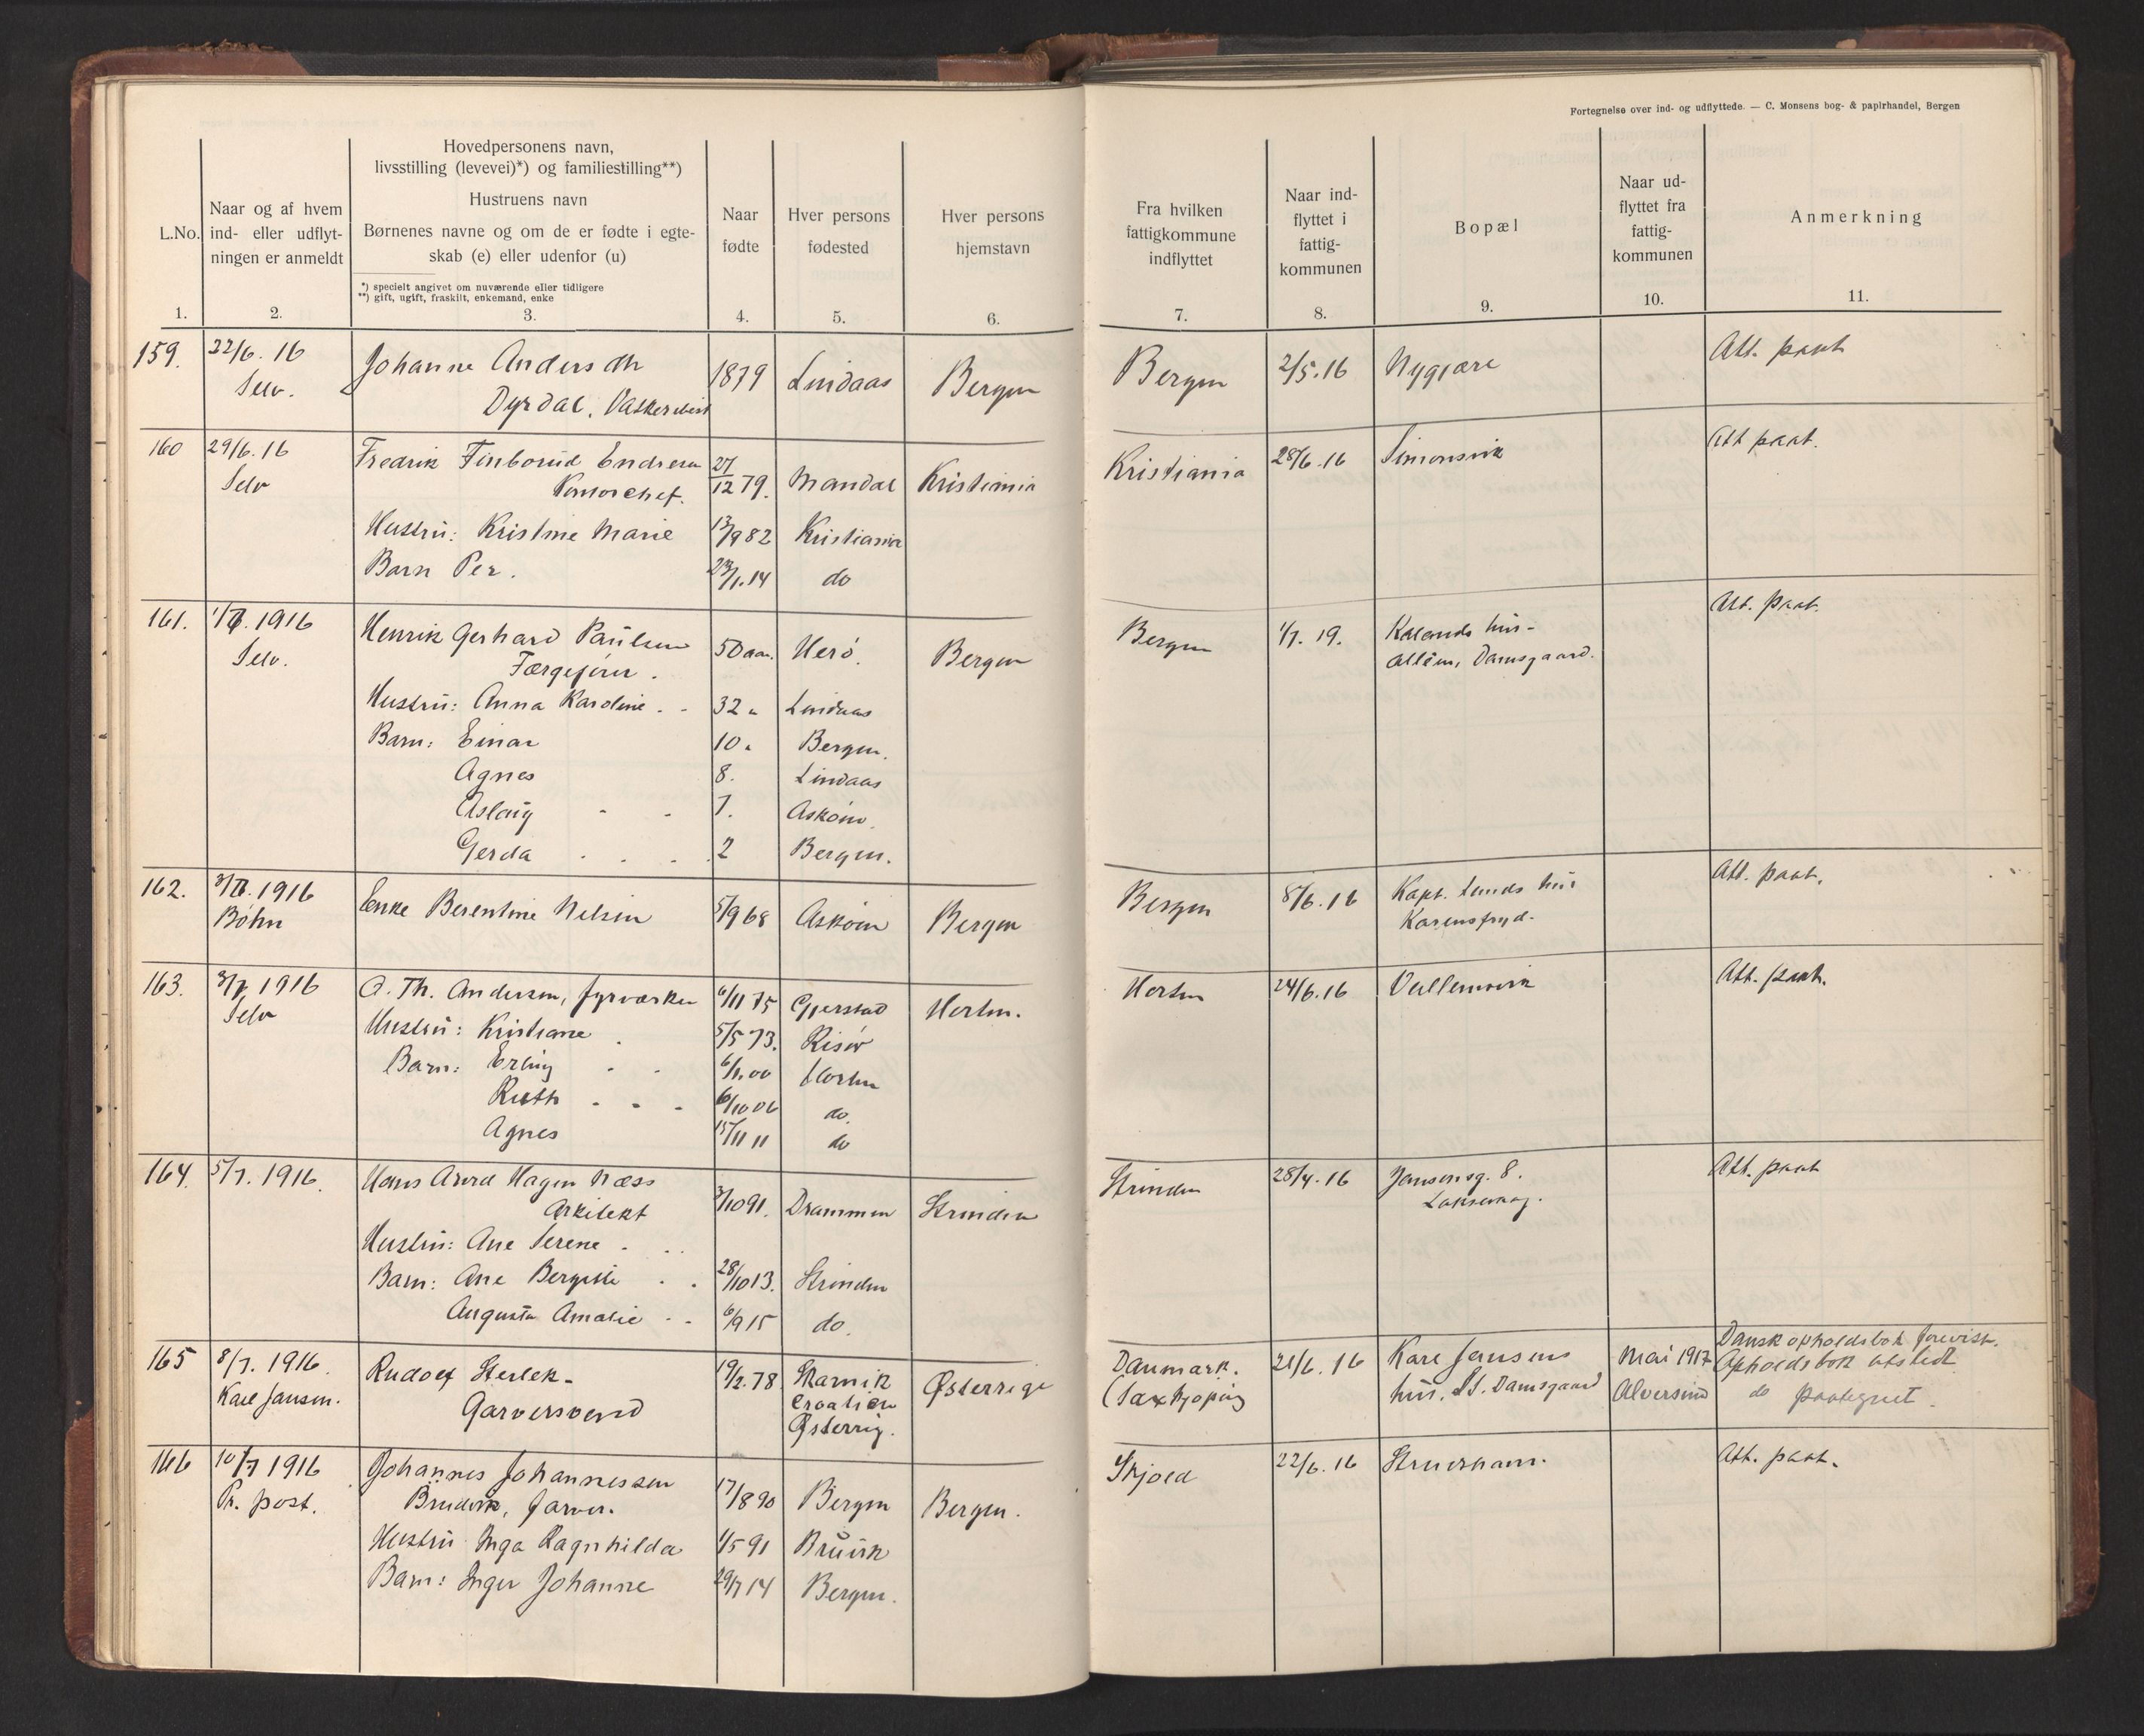 Fortegnelse over ind- og udflyttede. — C. Monsens bog- & papirhandel, Bergen
L.No.
1.
Naar og af hvem
ind- eller udflyt-
ningen er anmeldt
2.
Hovedpersonens navn,
livsstilling (levevei)*) og familiestilling**)
Hustruens navn
Børnenes navne og om de er fødte i egte-
skab (e) eller udenfor (u)
*) specielt angivet om nuværende eller tidligere
**) gift, ugift, fraskilt, enkemand, enke
3.
Naar
fødte
4.
Hver persons
fødested
5.
Hver persons
hjemstavn
6.
Fra hvilken
fattigkommune
indflyttet
7.
Naar ind-
flyttet i
fattig-
kommunen
8.
Bopæl
9.
Naar ud-
flyttet fra
fattig-
kommunen
10.
Anmerkning
11.
159. 22/6. 16 Johanne Anders dtr 1879 Lindaas Bergen Bergen 2/5. 16 Nygjære Att. paat
Selv. Dyrdal,
160 29/6. 16 Fredrik Endresen 27/12 79. Mandal Kristiania Kristiania 28/6. 16 Simonsvik Att paat.
Selv Kontorchef.
Hustru: Kristine Marie 13/9 82 Kristiania
Barn Per. 1. 14 do
161. 1916 Henrik Gerhard Paulsen 50 aar. Herö. Bergen Bergen 1/7. 19. Kalands hus- Att. paat.
Selv. Færgefører. Alléen, Damsgaard.
Hustru: Anna Karoline 32 " Lindaas
Barn: Einar 10 " Bergen.
Agnes 8. Lindaas
Aslaug 7. Askøen
Gerda 2 Bergen.
162. 1916 Enke Berentine Nelsen 5/9 68 Askøen Bergen Bergen 8/6. 16 Kapt. Lunds hus Att. paat.
Bøhn Karensfryd.
163. 3/7 1916 A. Th. Andersen, fyrværker 6/11 75 Gjerstad Horten. Horten 24/6. 16 Att. paat.
Selv Hustru: Kristiane 5/5 73. Risør
Barn: Erling 6/1. 00 Horten
Ruth 6/10 06 do.
Agnes 15/11 11 do
164. 5/7. 1916. Hans Arvid Hagen Næss 3/10 91. Drammen Strinden Strinden 28/4. 16 Jansensg. 8. Att. paat
Arkitekt Laksevaag.
Hustru: Ane Serene
Barn: Ane Bergitte 28/10 13. Strinden
Augusta Amalie 6/9 15 do.
165 8/7. 1916. Rudolf Sterlek. 19/2. 78 Kamnik Østerrige Danmark. 21/6. 16 Karl Jansens Mai 1917 Dansk opholdsbok forevist.
Karl Jansen. Garversvend Croatien (Saxkjøping hus, Damsgaard Alversund Opholdsbok utstedt
Østerrig. do paategnet.
166 10/7 1916 Johannes Johannessen 17/8 90 Bergen Bergen. Skjold 22/6. 16 Struesham. Att. paat.
Pr. post. Bruvik, farver.
Hustru Inga Ragnhilda 1/5 91 Bruvik
Barn: Inger Johanne 29/7 14 Bergen.